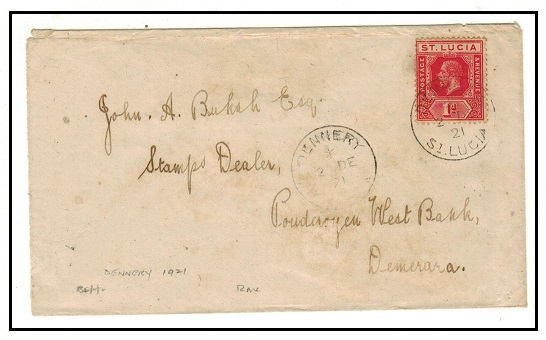 ST. LUCIA
POSTAGE & REVENUE
1d
21
ST. LUCIA
John. A. Buksh Esq.
DENNERY
2 DE
21
Stamps Dealer,
Poudroyen West Bank,
Demerara.
DENNERY 1921